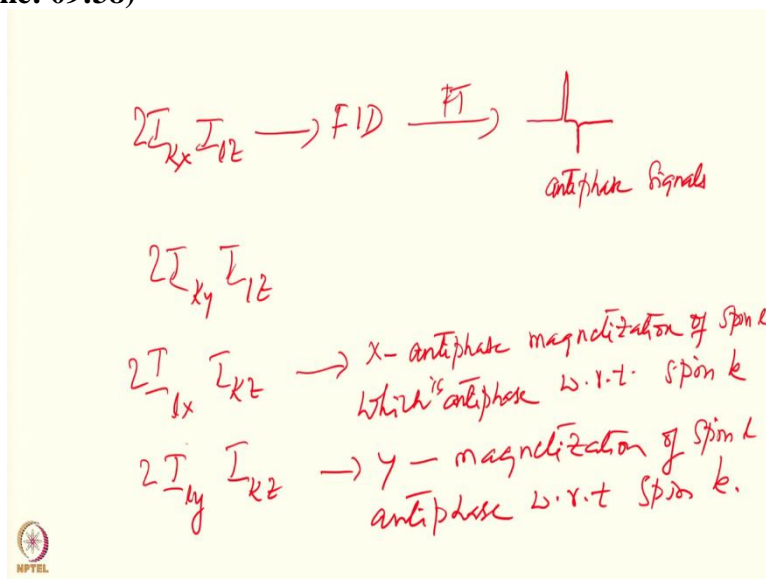 ne: 09:58)
2I_kx I_lz → FID —FT→
antiphase Signals
2I_ky I_lz
2I_lx I_kz → x- antiphase magnetization of Spin l
which is antiphase w.r.t. spin k
2I_ly I_kz → y - magnetization of Spin l
antiphase w.r.t Spin k.
NPTEL